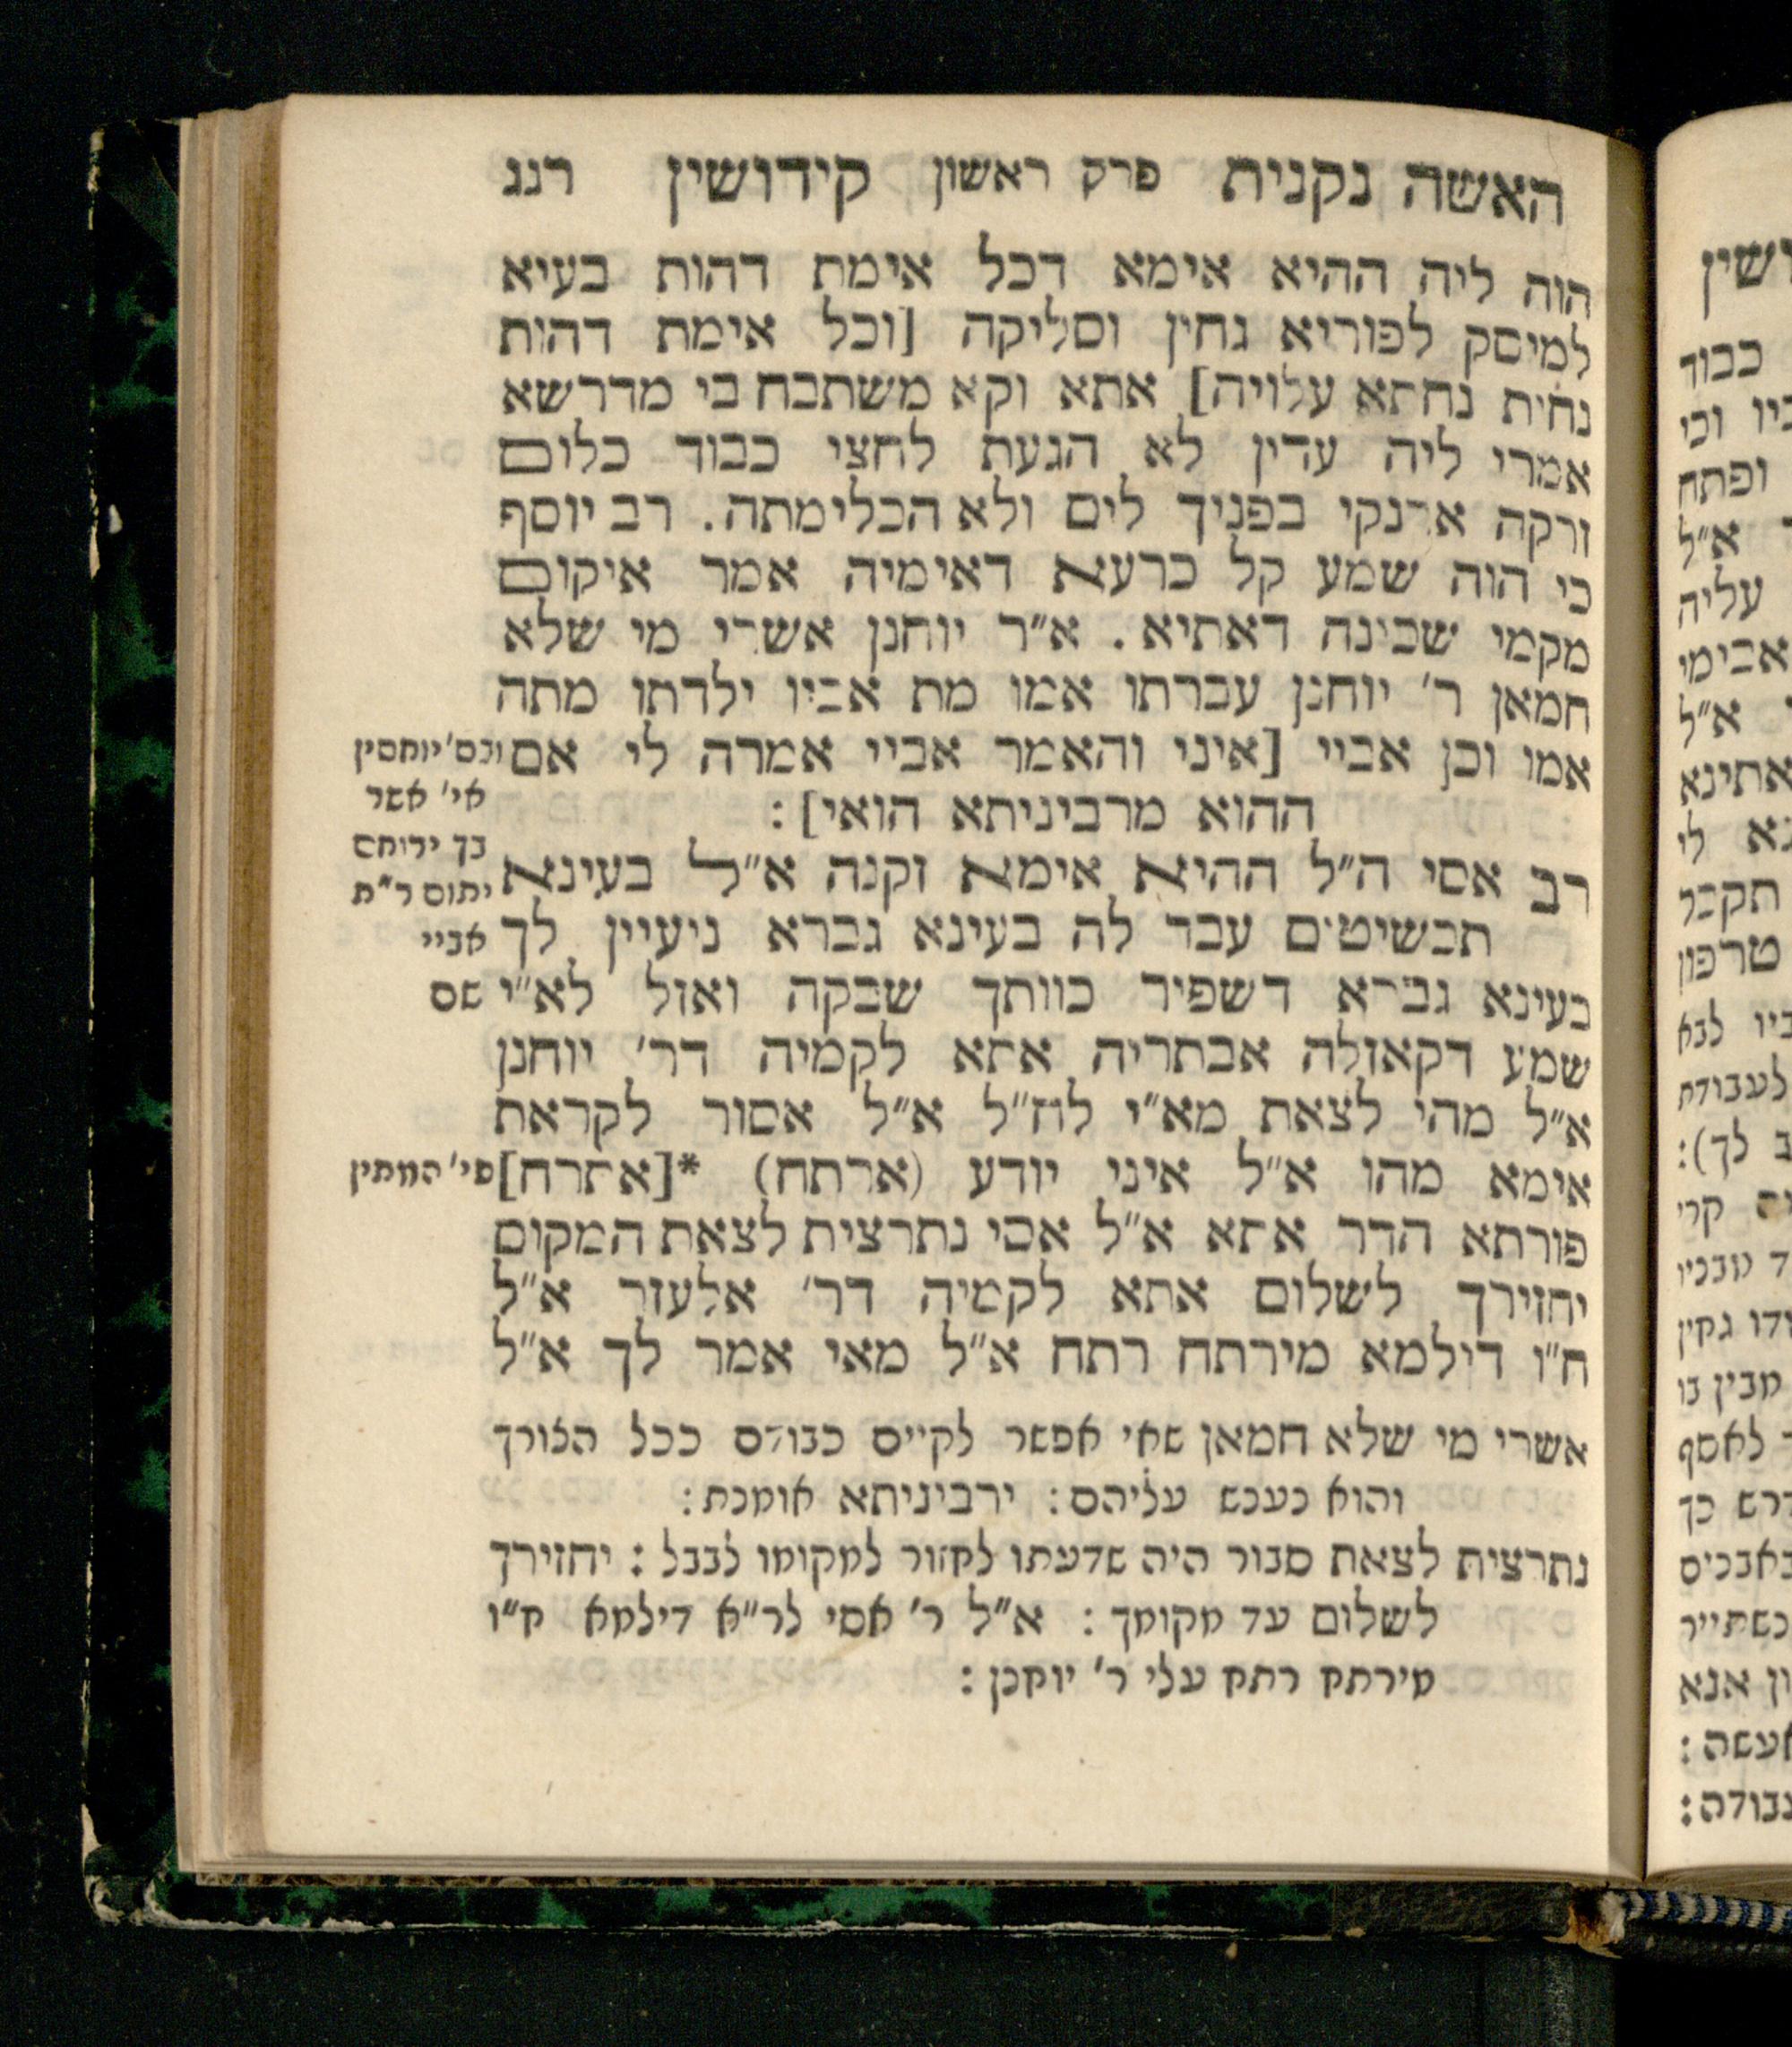 האשה נקנית פרק ראשון קידושין רנג
הוה ליה ההיא אימא דכל אימת דהות בעיא
למיסק לפוריא גחין וסליקה [וכל אימת דהות
נחית נחתא עלויה] אתא וקא משתבח בי מדרשא
אמרי ליה עדין לא הגעת לחצי כבוד כלום
זרקה ארנקי בפניך לים ולא הכלימתה. רב יוסף
כי הוה שמע קל כרעא דאימיה אמר איקום
מקמי שכינה דאתיא. א״ר יוחנן אשרי מי שלא
חמאן ר׳ יוחנן עברתו אמו מת אביו ילדתו מתה
אמו וכן אביי [איני והאמר אביי אמרה לי אם
ההוא מרביניתא הואי]:
רב אסי ה״ל ההיא אימא זקנה א״ל בעינא
תכשיטים עבד לה בעינא גברא ניעיין לך
בעינא גברא דשפיר כוותך שבקה ואזל לא״י
שמע דקאזלה אבתריה אתא לקמיה דר׳ יוחנן
א״ל מהי לצאת מא״י לח״ל א״ל אסור לקראת
אימא מהו א״ל איני יודע (ארתח) *[אתרח]
פורתא הדר אתא א״ל אסי נתרצית לצאת המקום
יחזירך לשלום אתא לקמיה דר׳ אלעזר א״ל
ח״ו דילמא מירתח רתח א״ל מאי אמר לך א״ל
ובס׳ יוחסין
אי׳ אשר
בך ירוחם
יתום ר״ת
אביי
שם
פי׳ המתין
אשרי מי שלא חמאן שאי אפשר לקיים כבודם ככל הצורך
והוא נענש עליהם: ירביניתא אומנת:
נתרצית לצאת סבור היה שדעתו לחזור למקומו לבבל: יחזירך
לשלום עד מקומך: א״ל ר׳ אסי לר״א דילמא ח״ו
מירתח רתח עלי ר׳ יוחנן:
ושין
כבוד
ביו וכי
ופתח
א״ל
עליה
אבימי
א״ל
אתינא
לי
תקבר
טרפון
ביו לבא
לעבודת
לך):
קרי
מבניו
גקין
מבין בו
לאסף
דרש כך
באבנים
כשתייר
ון אנא
אעשה:
עבודה: